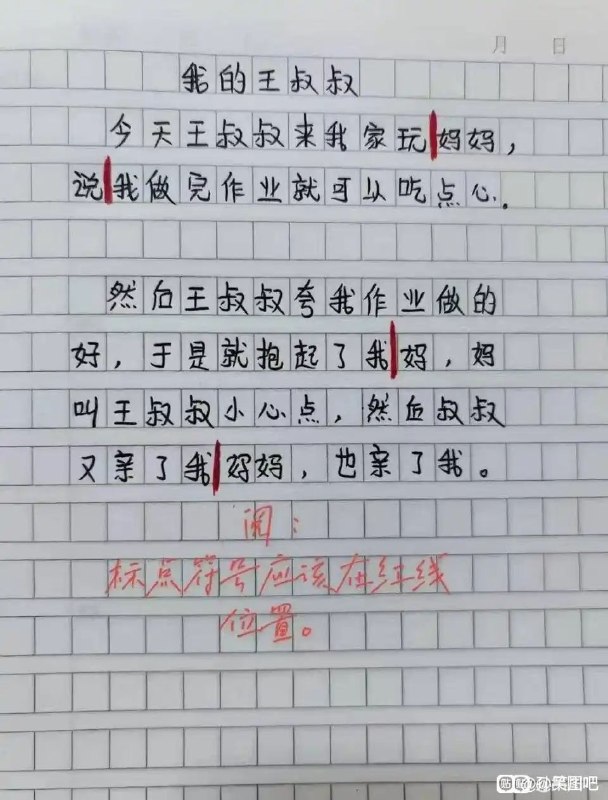 月 日
我的王叔叔
今天王叔叔来我家玩妈妈，
说我做完作业就可以吃点心。
然后王叔叔夸我作业做的
好，于是就抱起了我妈，妈
叫王叔叔小心点，然后叔叔
又亲了我妈妈，也亲了我。
阅：
标点符号应该在红线
位置。